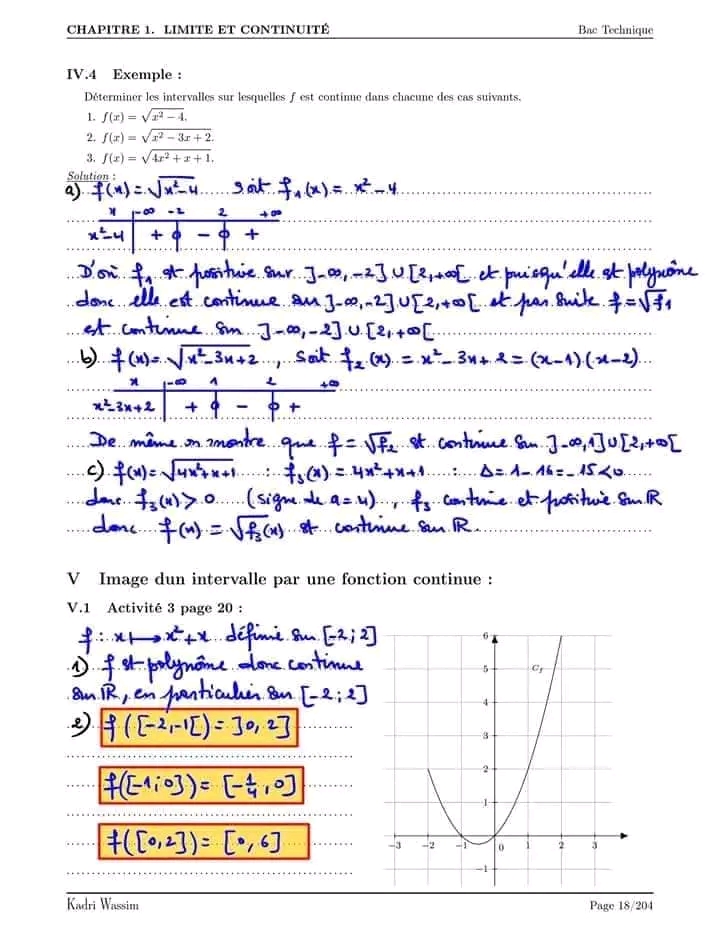 CHAPITRE 1. LIMITE ET CONTINUITÉ Bac Technique
IV.4 Exemple :
Déterminer les intervalles sur lesquelles f est continue dans chacune des cas suivants.
1. f(x) = √(x² − 4).
2. f(x) = √(x² − 3x + 2).
3. f(x) = √(4x² + x + 1).
Solution :
a) f(x) = √(x²-4) Soit f₁(x) = x² - 4
x -∞ -2 2 +∞
x²-4 + 0 - 0 +
D'où f₁ est positive sur ]-∞,-2] ∪ [2,+∞[ et puisqu'elle est polynôme
donc elle est continue sur ]-∞,-2] ∪ [2,+∞[ et par suite f = √f₁
est continue sur ]-∞,-2] ∪ [2,+∞[
b) f(x) = √(x²-3x+2) , Soit f₂(x) = x² - 3x + 2 = (x-1)(x-2)
x -∞ 1 2 +∞
x²-3x+2 + 0 - 0 +
De même on montre que f = √f₂ est continue sur ]-∞,1] ∪ [2,+∞[
c) f(x) = √(4x²+x+1) : f₃(x) = 4x²+x+1 : Δ = 1-16 = -15 < 0
donc f₃(x) > 0 (signe de a = 4) , f₃ continue et positive sur ℝ
donc f(x) = √f₃(x) est continue sur ℝ.
V Image dun intervalle par une fonction continue :
V.1 Activité 3 page 20 :
f : x ↦ x² + x définie sur [-2 ; 2]
1) f est polynôme donc continue
sur ℝ, en particulier sur [-2 ; 2]
2) f([-2,-1[) = ]0, 2]
f([-1;0]) = [-1/4 , 0]
f([0,2]) = [0, 6]
6
5 C_f
4
3
2
1
−3 −2 −1 0 1 2 3
−1
Kadri Wassim Page 18/204